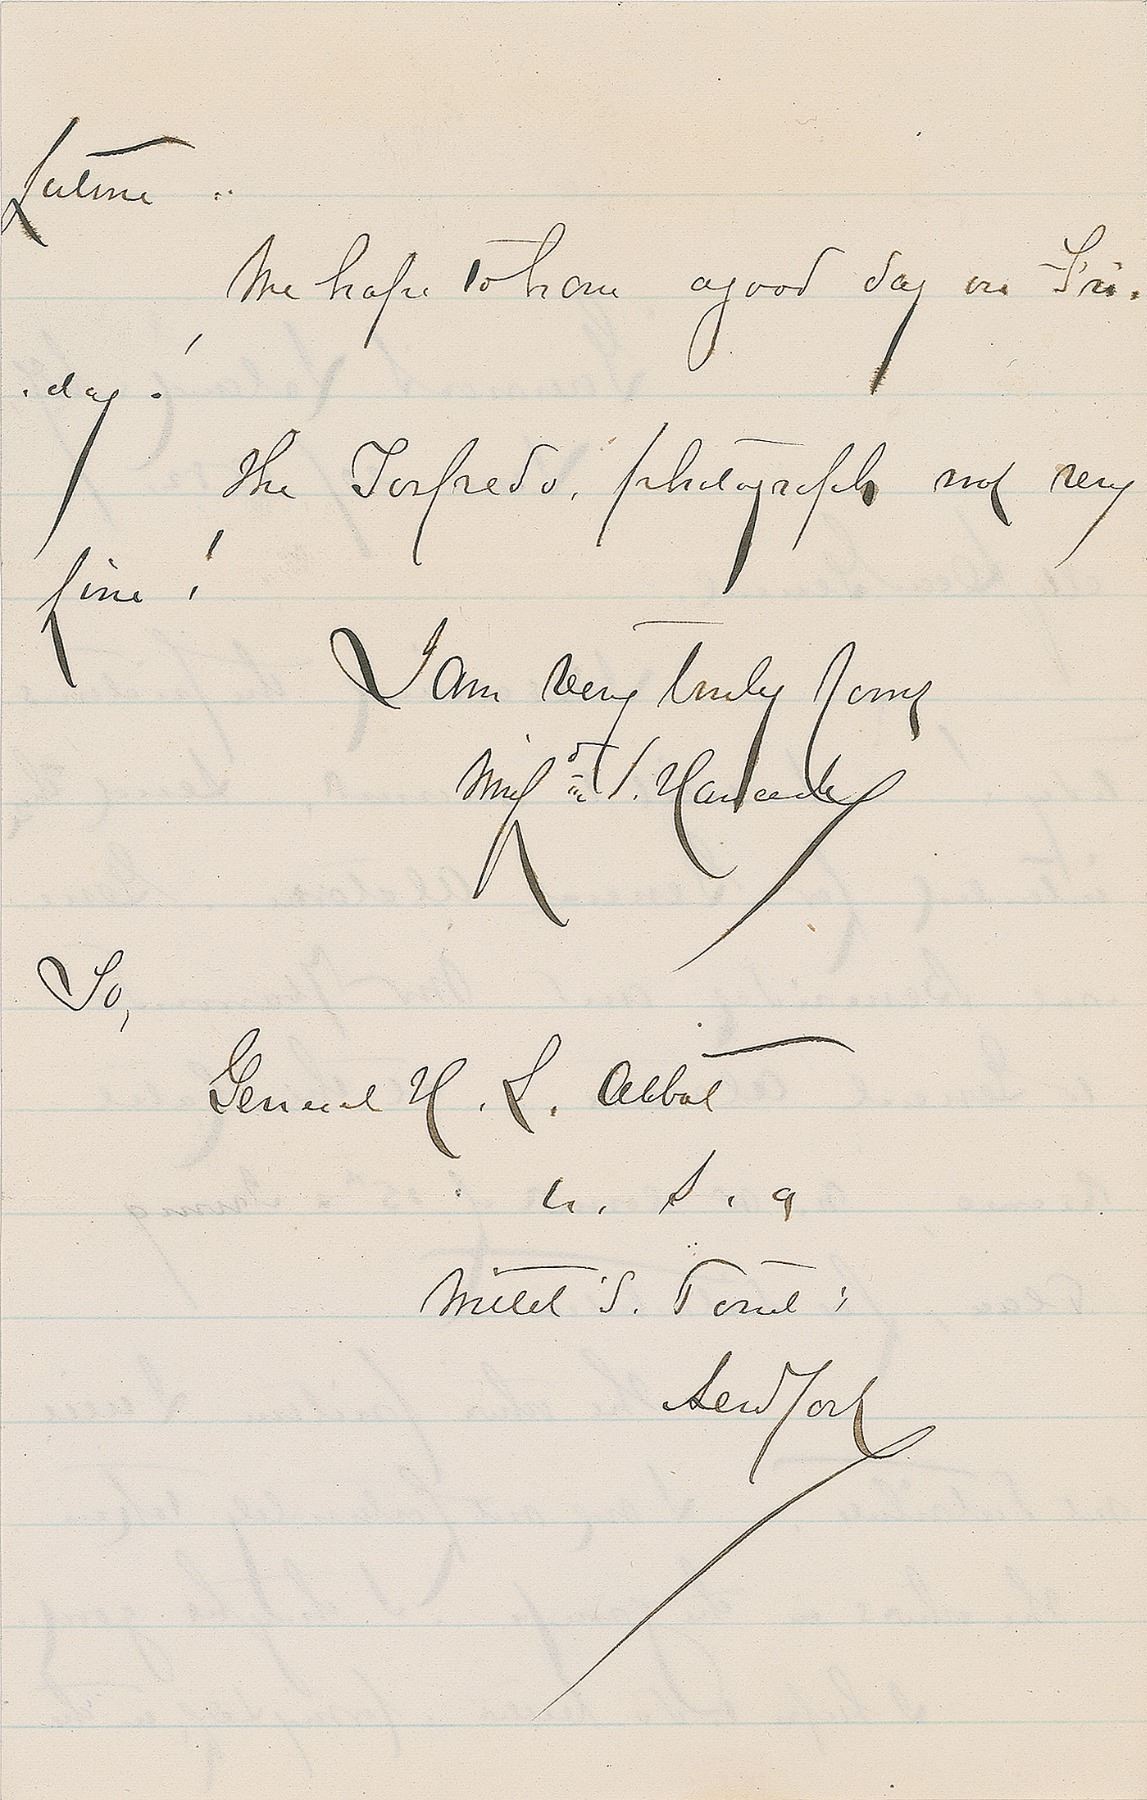 future.
We hope to have a good day on Fri-
-day.
The Torpedo, photograph not very
fine!
I am very truly yours
Winf'd S. Hancock
To,
General H. L. Abbot
U. S. A
Willet's Point;
New York